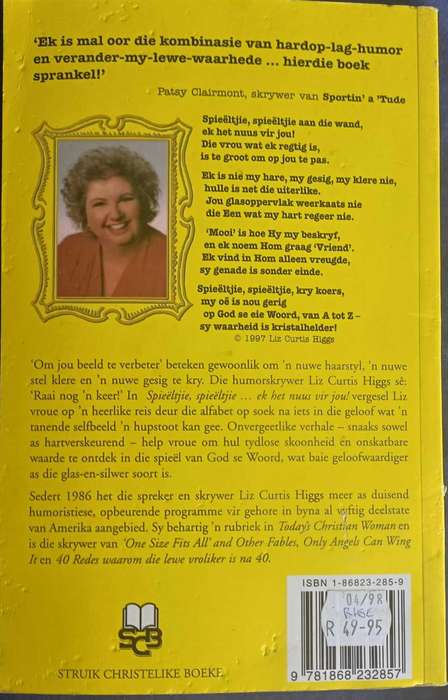 ‘Ek is mal oor die kombinasie van hardop-lag-humor
en verander-my-lewe-waarhede ... hierdie boek
sprankel!’
Patsy Clairmont, skrywer van Sportin’ a ’Tude
Spieëltjie, spieëltjie aan die wand,
ek het nuus vir jou!
Die vrou wat ek regtig is,
is te groot om op jou te pas.
Ek is nie my hare, my gesig, my klere nie,
hulle is net die uiterlike.
Jou glasoppervlak weerkaats nie
die Een wat my hart regeer nie.
‘Mooi’ is hoe Hy my beskryf,
en ek noem Hom graag ‘Vriend’.
Ek vind in Hom alleen vreugde,
sy genade is sonder einde.
Spieëltjie, spieëltjie, kry koers,
my oë is nou gerig
op God se eie Woord, van A tot Z –
sy waarheid is kristalhelder!
© 1997 Liz Curtis Higgs
‘Om jou beeld te verbeter’ beteken gewoonlik om ’n nuwe haarstyl, ’n nuwe
stel klere en ’n nuwe gesig te kry. Die humorskrywer Liz Curtis Higgs sê:
‘Raai nog ’n keer!’ In Spieëltjie, spieëltjie ... ek het nuus vir jou! vergesel Liz
vroue op ’n heerlike reis deur die alfabet op soek na iets in die geloof wat ’n
tanende selfbeeld ’n hupstoot kan gee. Onvergeetlike verhale – snaaks sowel
as hartverskeurend – help vroue om hul tydlose skoonheid én onskatbare
waarde te ontdek in die spieël van God se Woord, wat baie geloofwaardiger
as die glas-en-silwer soort is.
Sedert 1986 het die spreker en skrywer Liz Curtis Higgs meer as duisend
humoristiese, opbeurende programme vir gehore in byna al vyftig deelstate
van Amerika aangebied. Sy behartig ’n rubriek in Today’s Christian Woman en
is die skrywer van ‘One Size Fits All’ and Other Fables, Only Angels Can Wing
It en 40 Redes waarom die lewe vroliker is na 40.
ISBN 1-86823-285-9
04/98
R 49-95
9 781868 232857
SCB
STRUIK CHRISTELIKE BOEKE